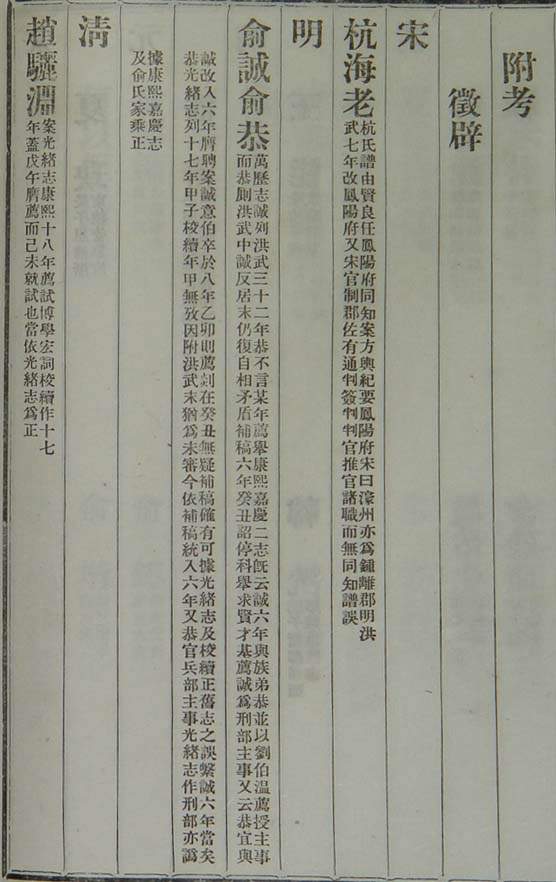 附考
徵辟
宋
杭海老杭氏譜由賢良任鳳陽府同知案方輿紀要鳳陽府宋曰濠州亦爲鍾離郡明洪
武七年改鳳陽府又宋官制郡佐有通判簽判判官推官諸職而無同知譜誤
明
俞誠俞恭萬歷志誠列洪武三十二年恭不言某年薦舉康熙嘉慶二志旣云誠六年與族弟恭並以劉伯温薦授主事
而恭則洪武中誠反居末仍復自相矛盾補稿六年癸丑詔停科舉求賢才基薦誠爲刑部主事又云恭宜與
誠改入六年膺聘案誠意伯卒於八年乙卯則薦剡在癸丑無疑補稿確有可據光緒志及校續正舊志之誤繫誠六年當矣
恭光緒志列十七年甲子校續年甲無攷因附洪武末猶爲未審今依補稿統入六年又恭官兵部主事光緒志作刑部亦譌
據康熙嘉慶志
及俞氏家乘正
清
趙驪淵案光緒志康熙十八年薦試博學宏詞校續作十七
年蓋戊午膺薦而己未就試也當依光緒志爲正